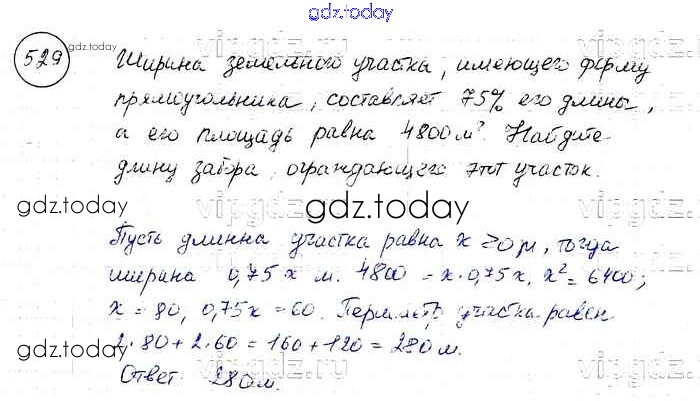 gdz.today
529
gdz.today
vipgdz.ru
vipgdz.ru
Ширина земельного участка, имеющего форму
прямоугольника, составляет 75% его длины,
а его площадь равна 4800 м². Найдите
длину забора, ограждающего этот участок.
gdz.today
vipgdz.ru
gdz.today
vipgdz.ru
Пусть длинна участка равна x > 0 м, тогда
ширина 0,75x м. 4800 = x·0,75x, x² = 6400;
x = 80, 0,75x = 60. Периметр участка равен
gdz.today
2·80 + 2·60 = 160 + 120 = 280 м.
Ответ 280 м.
vipgdz.ru
vipgdz.ru